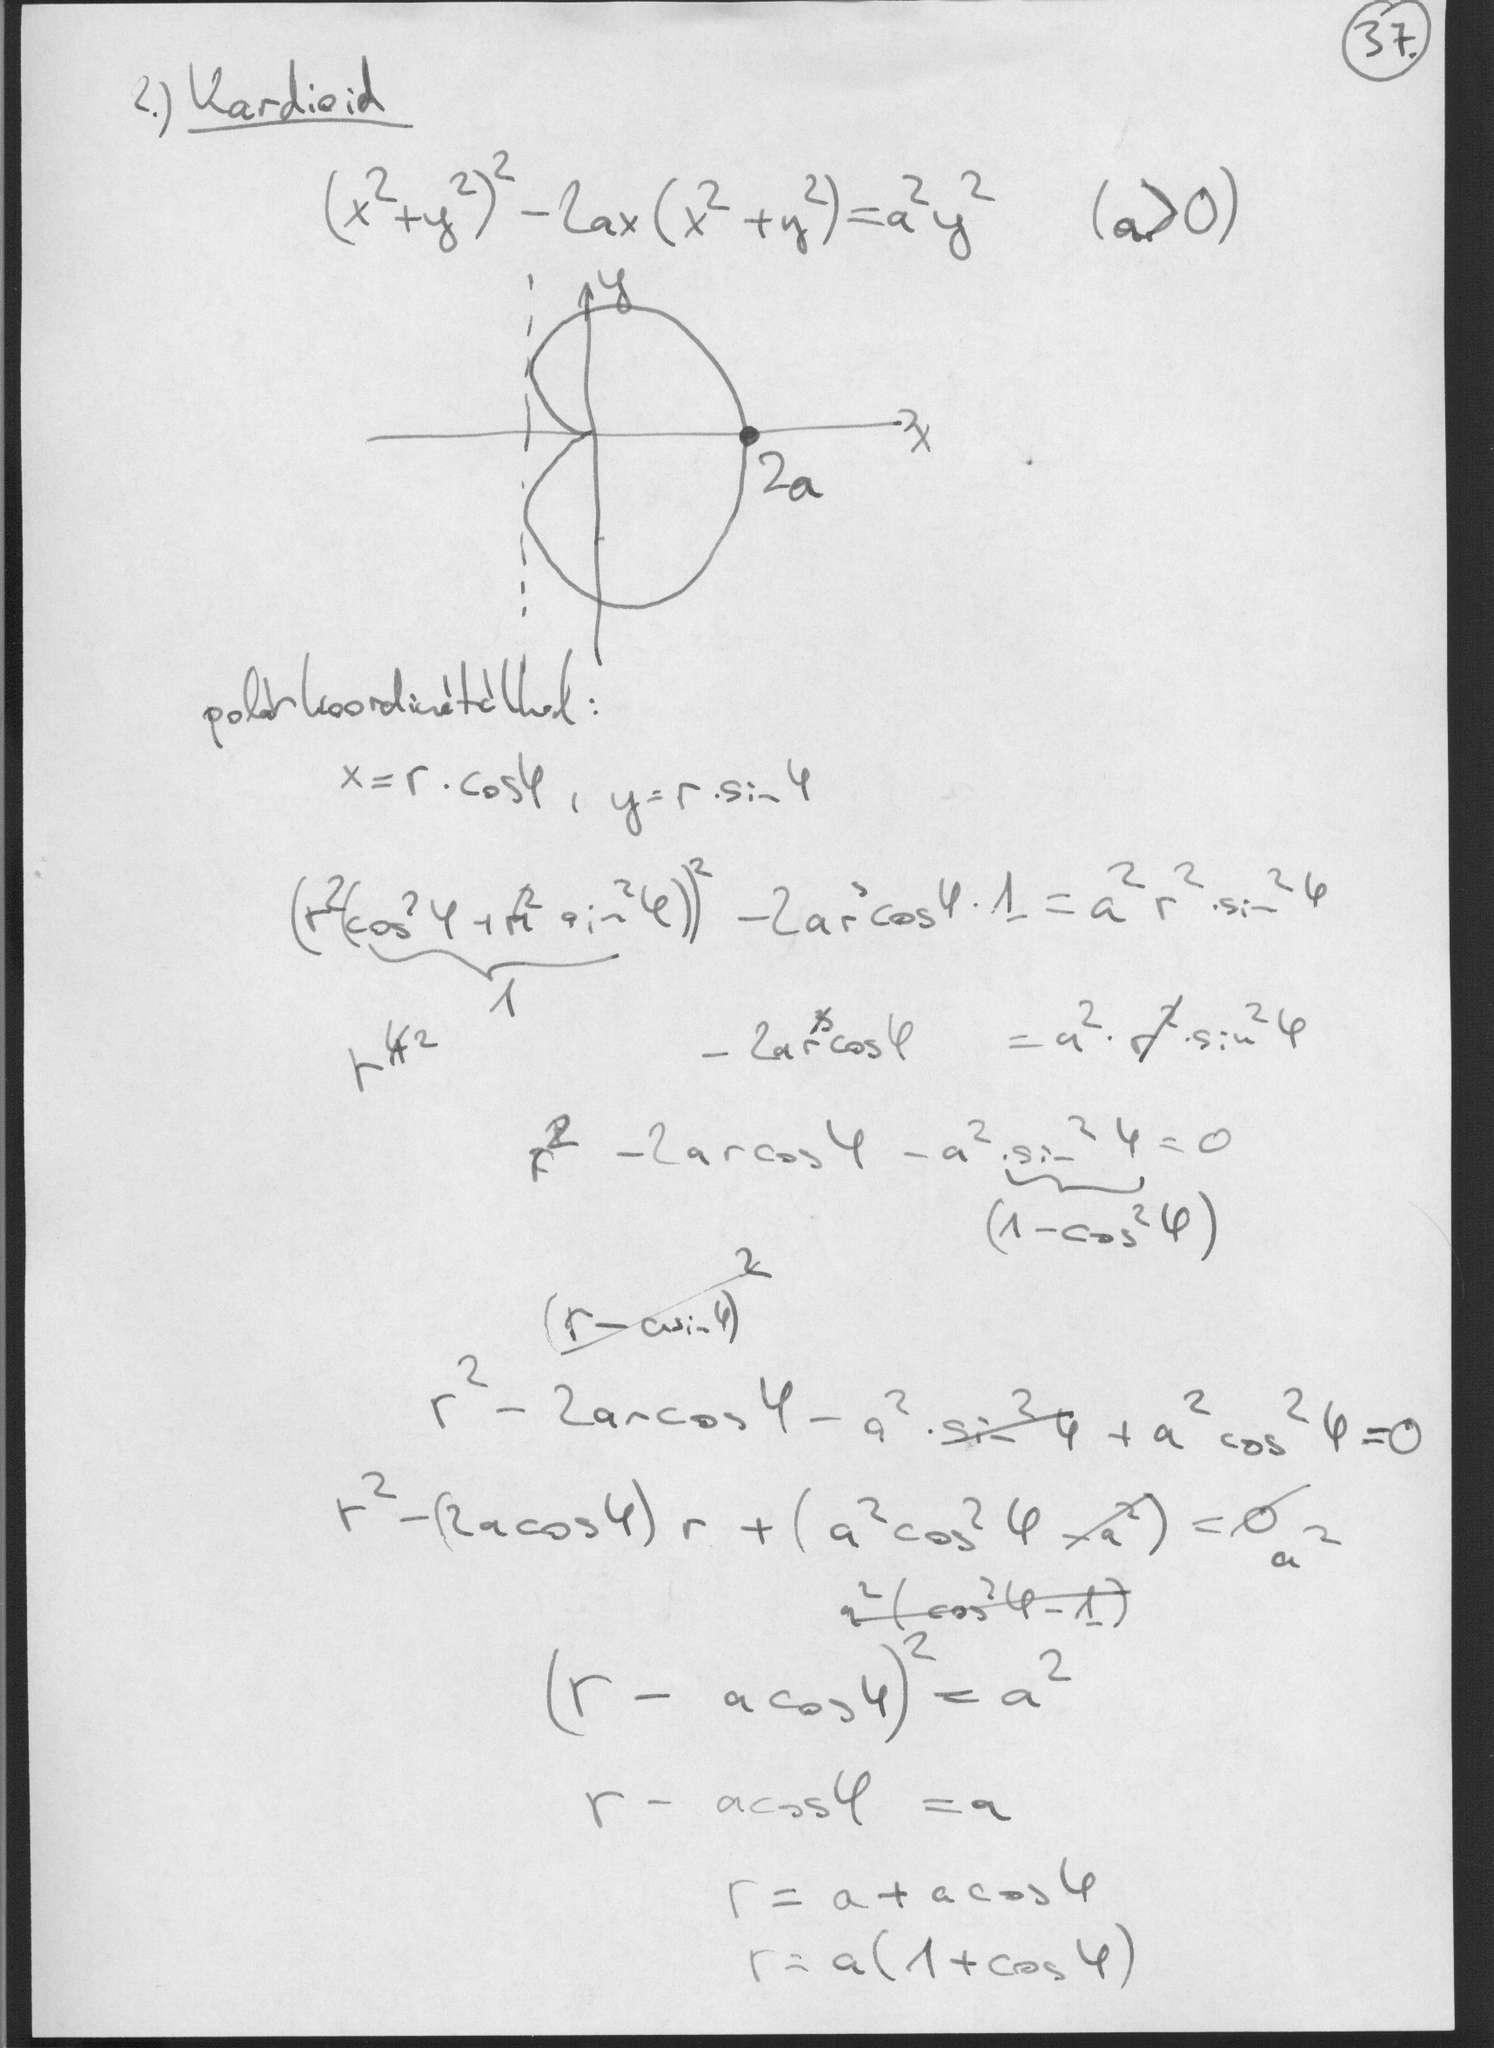 37.
2.) Kardioid
(x²+y²)² - 2ax(x²+y²) = a²y² (a>0)
y
x
2a
polárkoordinátákkal:
x = r·cosφ, y = r·sinφ
(r²(cos²φ + r² sin²φ))² - 2ar³cosφ·1 = a²r²·sin²φ
1
r⁴ - 2ar³cosφ = a²·r²·sin²φ
r² - 2arcosφ - a²·sin²φ = 0
(1-cos²φ)
(r - asinφ)²
r² - 2arcosφ - a²·sin²φ + a²cos²φ = 0
r² - (2acosφ)r + (a²cos²φ - a²) = 0 a²
a²(cos²φ - 1)
(r - acosφ)² = a²
r - acosφ = a
r = a + acosφ
r = a(1+cosφ)